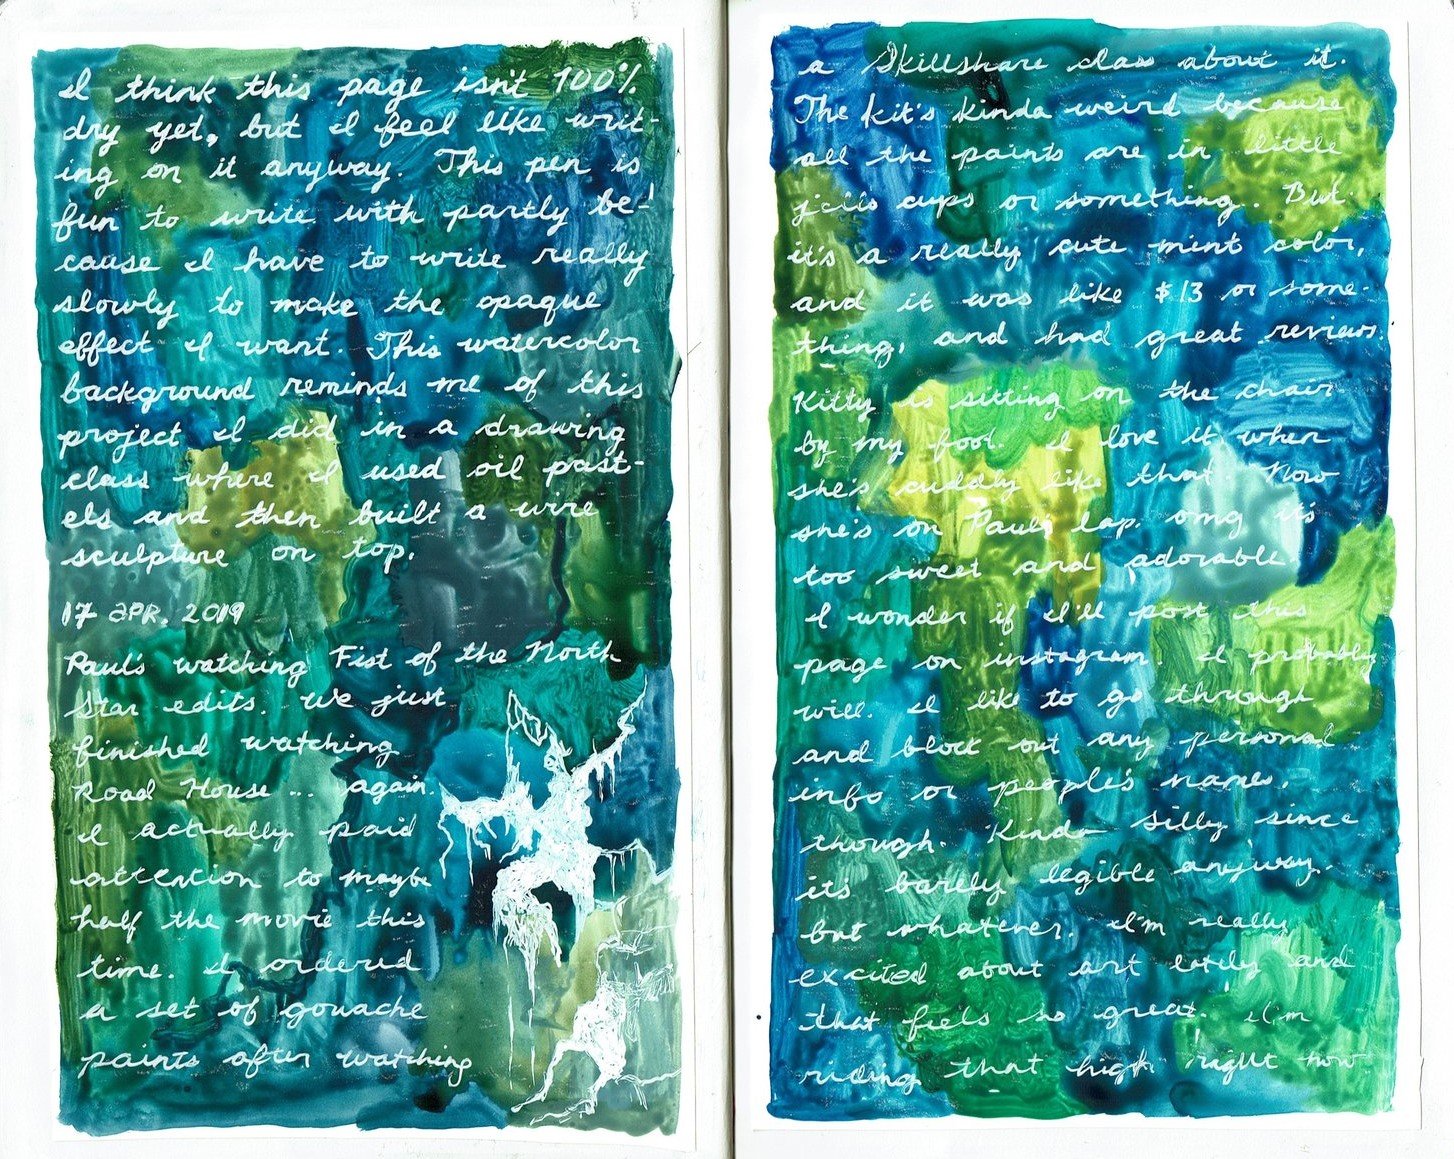 I think this page isn't 100%
dry yet, but I feel like writ-
ing on it anyway. This pen is
fun to write with partly be-
cause I have to write really
slowly to make the opaque
effect I want. This watercolor
background reminds me of this
project I did in a drawing
class where I used oil past-
els and then built a wire
sculpture on top.
17 APR. 2019
Paul's watching Fist of the North
Star edits. We just
finished watching
Road House ... again.
I actually paid
attention to maybe
half the movie this
time. I ordered
a set of gouache
paints after watching
a Skillshare class about it.
The kit's kinda weird because
all the paints are in little
cups or something. But
it's a really cute mint color,
and it was like $13 or some-
thing, and had great reviews.
Kitty is sitting on the chair
by my foot. I love it when
she's cuddly like that. Now
she's on Paul's lap. omg it's
too sweet and adorable
I wonder if I'll post this
page on instagram. I probably
will. I like to go through
and block out any personal
info or people's names,
though. Kinda silly since
it's barely legible anyway.
but whatever. I'm really
excited about art lately and
that feels so great. I'm
riding that high right now.